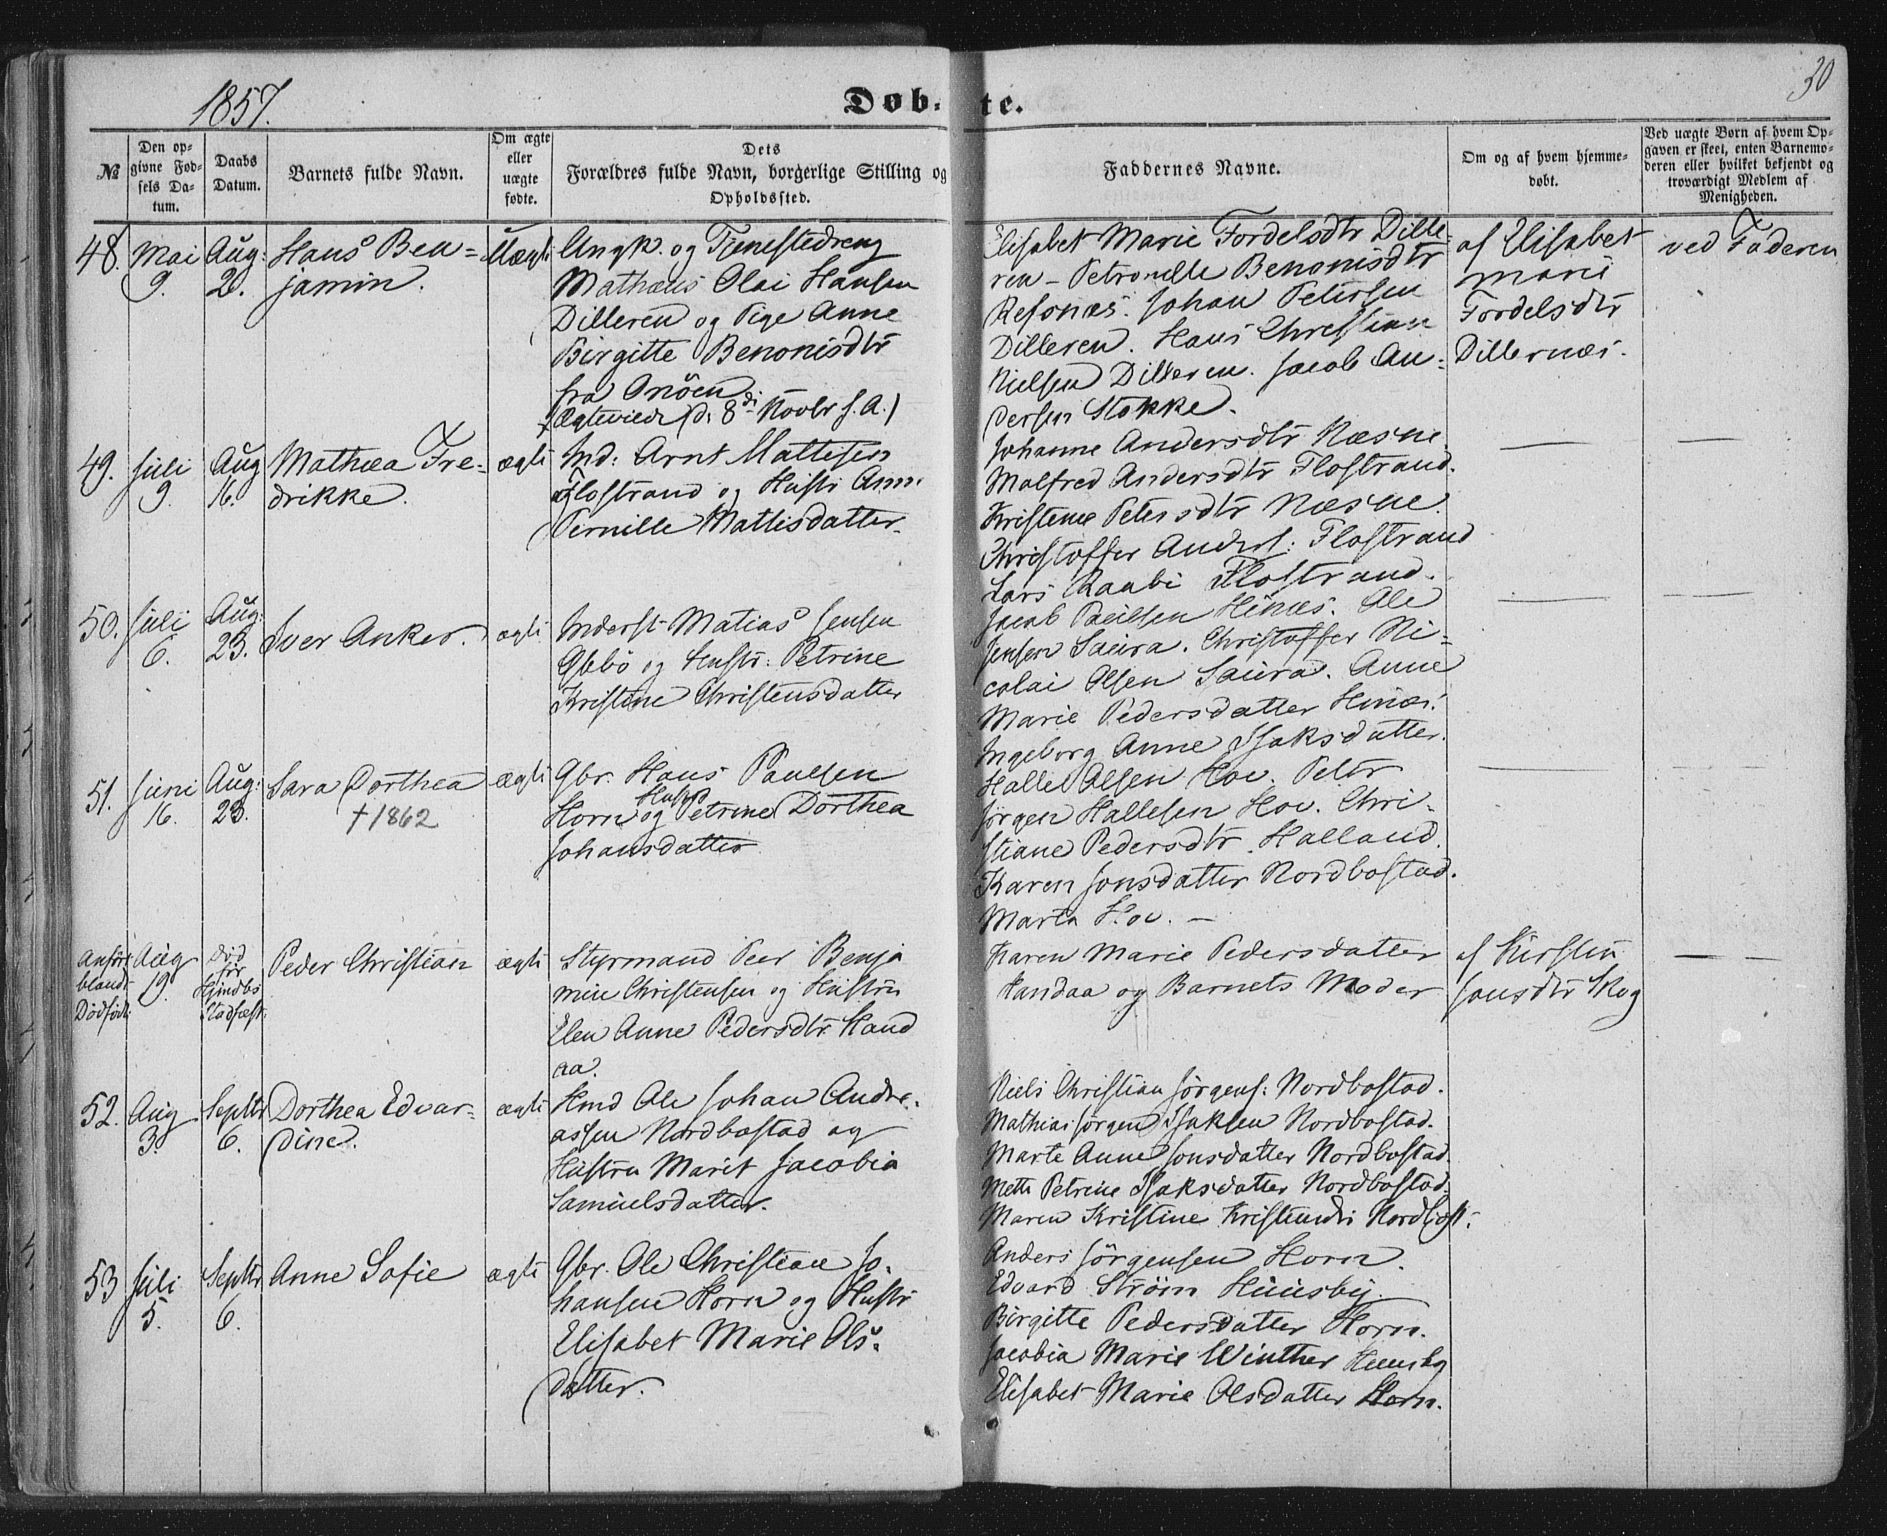 1857.
Døb-te.
30
№
Den op-
givne Fød-
sels Da-
tum.
Daabs
Datum.
Barnets fulde Navn.
Om ægte
eller
uægte
fødte.
Dets
Forældres fulde Navn, borgerlige Stilling og
Opholdssted.
Faddernes Navne.
Om og af hvem hjemme-
døbt.
Ved uægte Børn af hvem Op-
gaven er skeet, enten Barnemo-
deren eller hvilket bekjendt og
troværdigt Medlem af
Menigheden.
48.
Mai
9.
Aug:
2.
Hans Ben-
jamin.
Uægte
Ungk. og Tjenestedreng
Mathæus Olai Hansen
Dilleren og Pige Anne
Birgitte Benonisdtr
fra Onöen
(Ægteviede d. 8de Novbr s. A.)
Elisabet Marie Fordelsdtr Dille-
ren - Petronelle Benonisdtr
Refsnæs. Johan Petersen
Dilleren. Hans Christian
Nielsen Dilleren. Jacob An-
dersen Stokke.
af Elisabet
Marie
Fordelsdtr
Dillernæs.
ved Faderen
49.
Juli
9.
Aug
16.
Mathea Fre-
drikke.
ægte
Ind: Arnt Mattisen
Flostrand og Hustr Anne
Pernille Mattisdatter.
Johanne Andersdtr Næsne.
Malfred Andersdtr Flostrand.
Kristene Petersdtr Næsne.
Christoffer Anders: Flostrand
Lars Raabi Flostrand.
50.
Juli
6.
Aug:
23.
Iver Anker.
ægte
Inderst Matias Jensen
og Hustr: Petrine
Kristine Christensdatter
Jacob Paulsen Hinæs. Ole
Jensen Saura. Christoffer Ni-
colai Olsen Saura. Anne
Marie Pedersdatter Hinæs.
Ingeborg Anne Isaksdatter.
51.
Juni
16.
Aug:
23.
Sara Dorthea
† 1862
ægte
Gbr. Hans Paulsen
Horn og Hustr Petrine Dorthea
Johansdatter
Halle Olsen Hov. Peter
Jørgen Hallesen Hov. Chri-
stiane Pedersdtr. Halland.
Karen Jonsdatter Nordbostad.
Marta Hov. -
Anført
blandt
Dødfødte
Aug
19.
Død
før
Stadfæst.
Peder Christian
ægte
Styrmand Peer Benja
min Christensen og Hustru
Elen Anne Pedersdtr Hand
aa.
Karen Marie Pedersdatter
Handaa og Barnets Moder
af Kirsten
Jonsdtr Skog
52.
Aug
3.
Septbr
6.
Dorthea Edvar-
dine.
ægte
Hmd Ole Johan Andre-
assen Nordbostad og
Hustru Marit Jacobia
Samuelsdatter.
Niels Christian Jørgens: Nordbostad.
Mathias Jørgen Isaksen Nordbostad.
Marte Anne Jonsdatter Nordbostad
Mette Petrine Isaksdatter Nordbostad.
Maren Kristine Nordbost.
53
Juli
5.
Septbr
6.
Anne Sofie
ægte
Gbr. Ole Christian Jo-
hansen Horn og Hustr
Elisabet Marie Ols-
datter.
Anders Jörgensen Horn.
Edvard Ström Huusby.
Birgitte Pedersdatter Horn.
Jacobia Marie Winther Huusby
Elisabet Marie Olsdatter Horn.